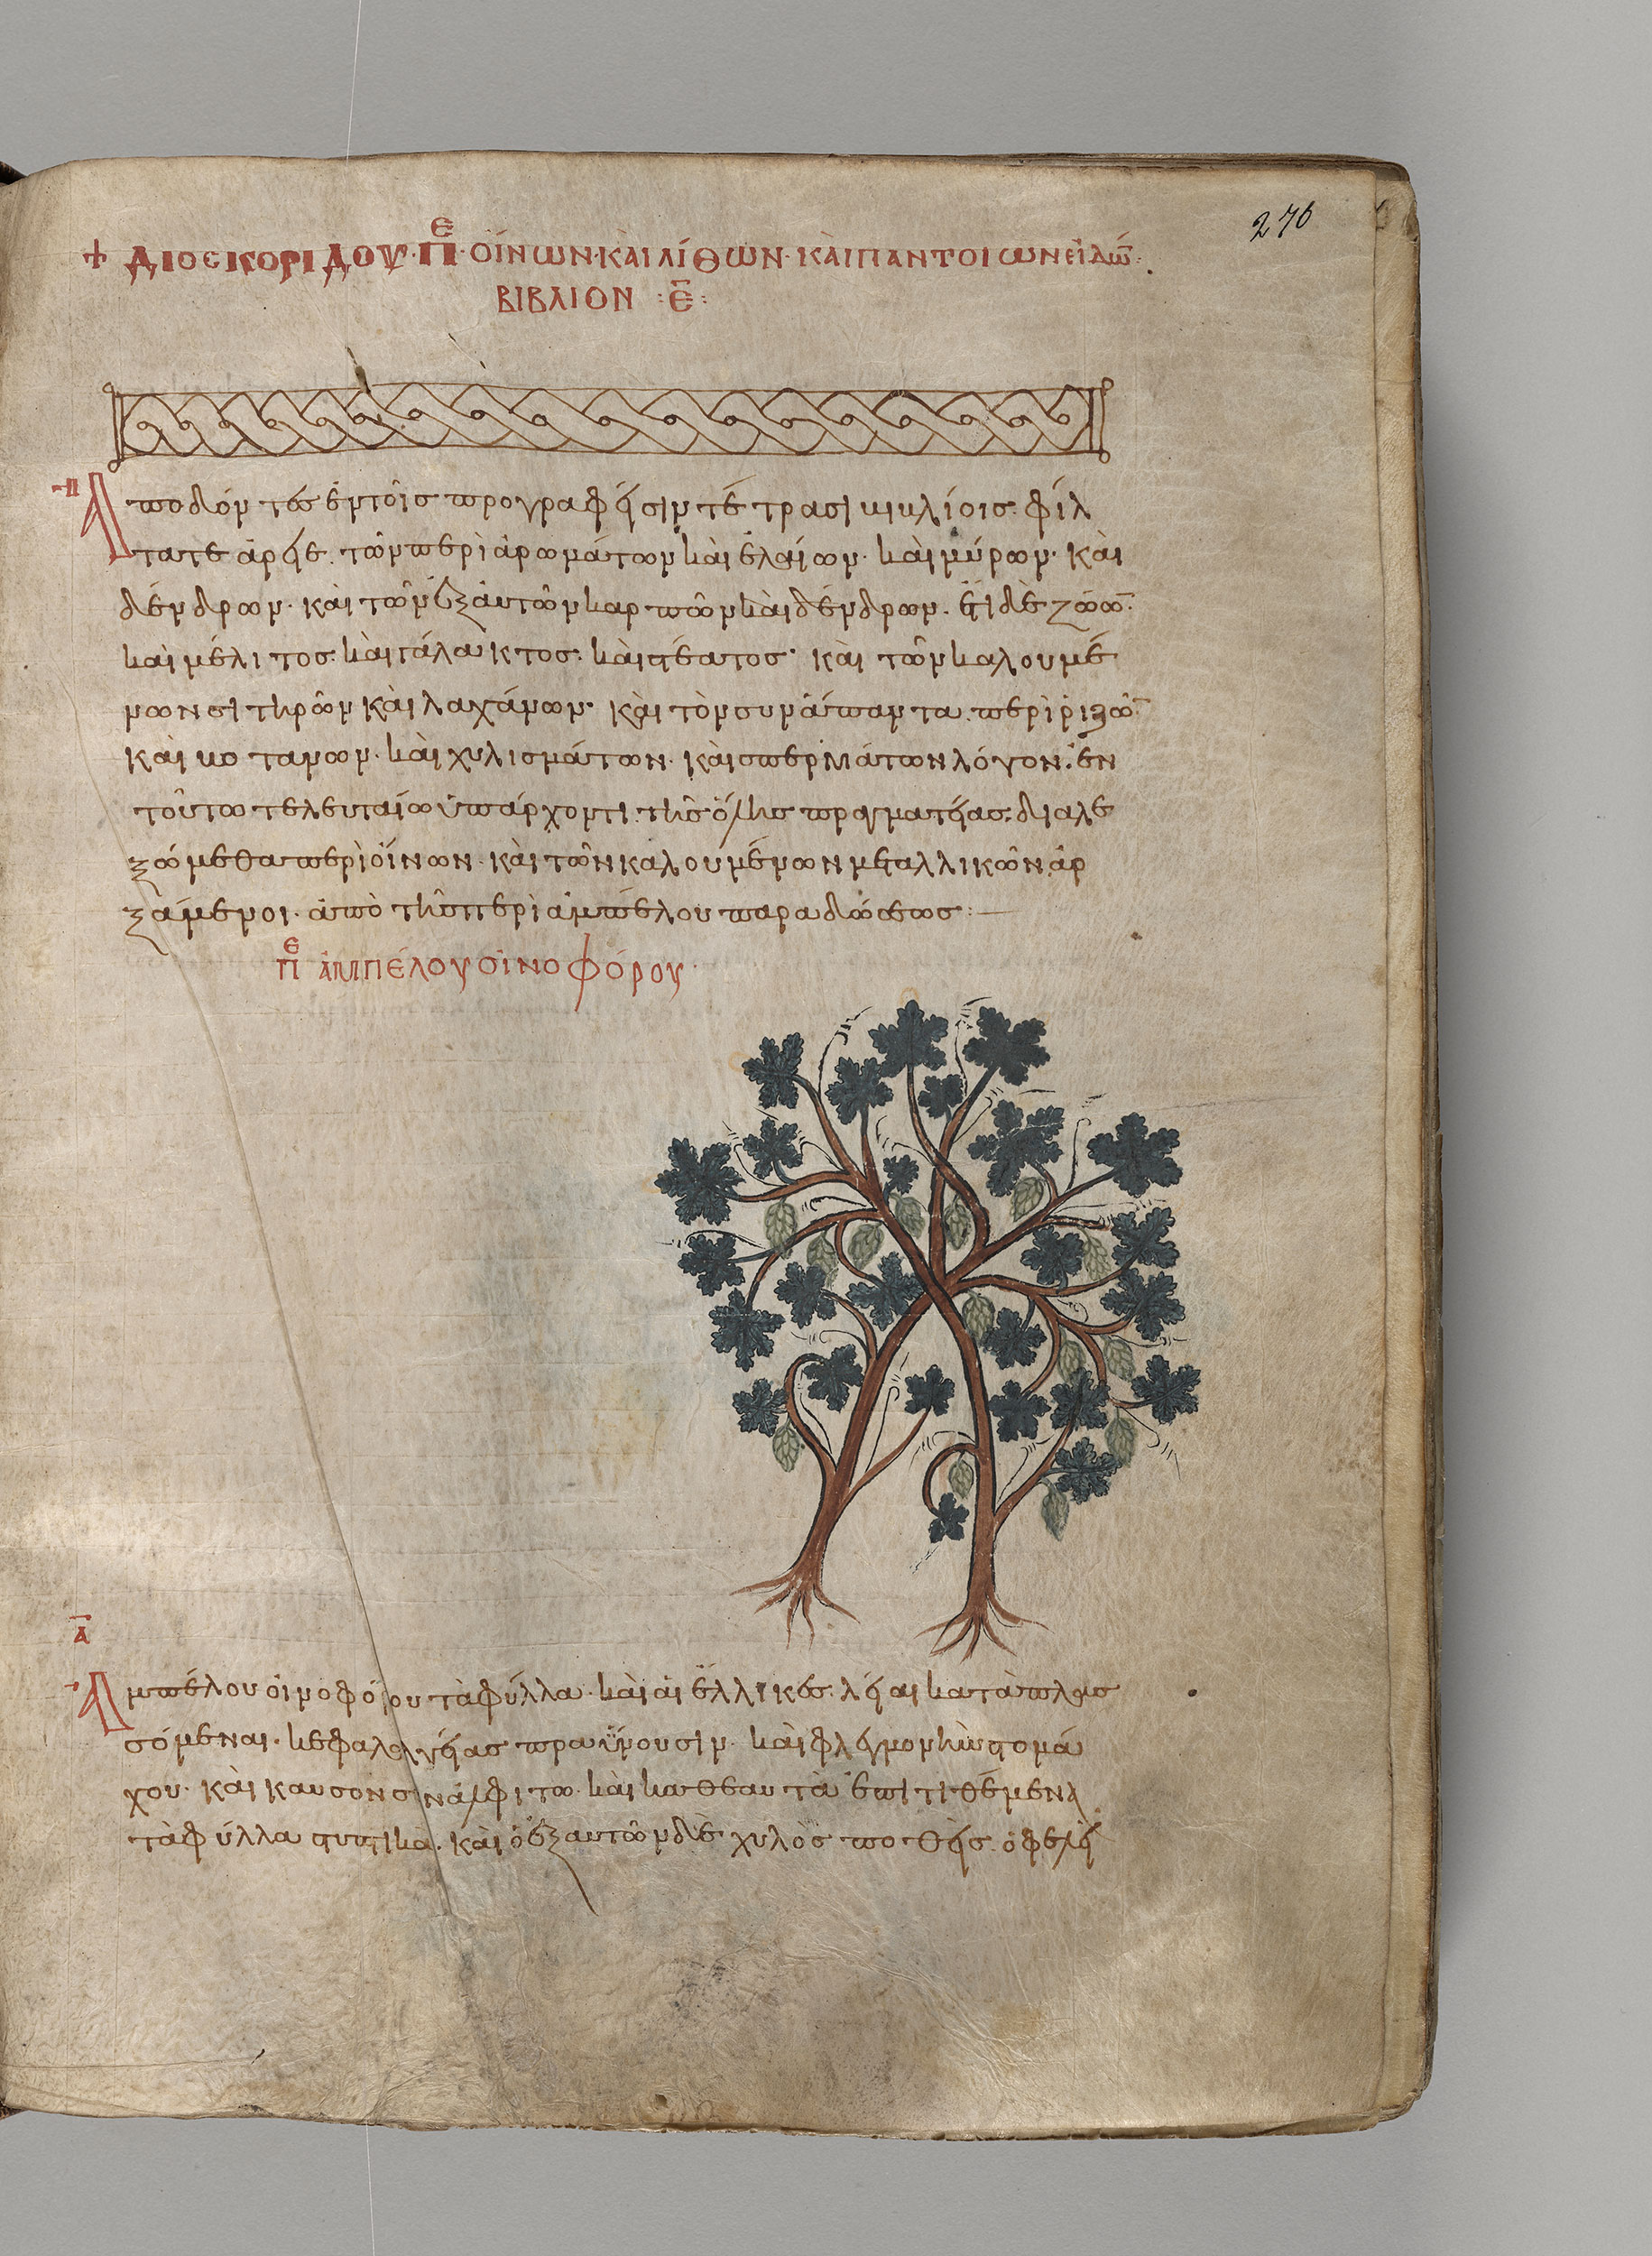 276
+ ΔΙΟΣΚΟΡΙΔΟΥ· Πε· ΟΪΝΩΝ· ΚΑῚ ΛΊΘΩΝ· ΚΑῚ ΠΑΝΤΟΙΩΝ ΕἸΔΩ͂
ΒΙΒΛΙΟΝ :Ε̄:
Ἀποδόντες ἐν τοῖσ προγραφείσιν τέτρασι βιβλίοισ. φίλ
τατε ἄρειε. τῶν περὶ ἀρωμάτων καὶ ἐλαίων· καὶ μύρων· καὶ
δένδρων· καὶ τῶν ἐξ αὐτῶν καρπῶν καὶ δένδρων. ἔτι δὲ ζώω̄·
καὶ μέλιτος. καὶ γάλακτος. καὶ στέατος· καὶ τῶν καλουμέ
νων σιτηρῶν καὶ λαχάνων· καὶ τὸν συνάπαντα περὶ ῥιζῶ̄
καὶ βοτανων· καὶ χυλισμάτων· καὶ σπερμάτων λόγον. ἐν
τούτω τελευταίω ὑπάρχοντι τῆσ ὅλησ πραγματείασ. διαλε
ξώμεθα περὶ οἴνων· καὶ τῶν καλουμένων μεταλλικῶν ἀρ
ξάμενοι· ἀπὸ τῆσ περὶ ἀμπέλου παραδώσεωσ:—
Πε ἈΜΠΈΛΟΥ ΟἸΝΟΦΌΡΟΥ·
Ᾱ
Ἀμπέλου οἰνοφόρου τὰ φύλλα· καὶ αἱ ἕλλικεσ. λείαι καταπλασ
σόμεναι· κεφαλαλγείασ πραΰνουσιν· καὶ φλεγμονὴν στομά
χου· καὶ καυσον σὺν ἀλφίτω· καὶ καθεαυτὰ ἐπιτιθέμενα
τὰ φύλλα στυπτικὰ. καὶ ὁ ἐξ αυτῶν δὲ χυλὸσ ποθεὶσ. ὀφελεῖ